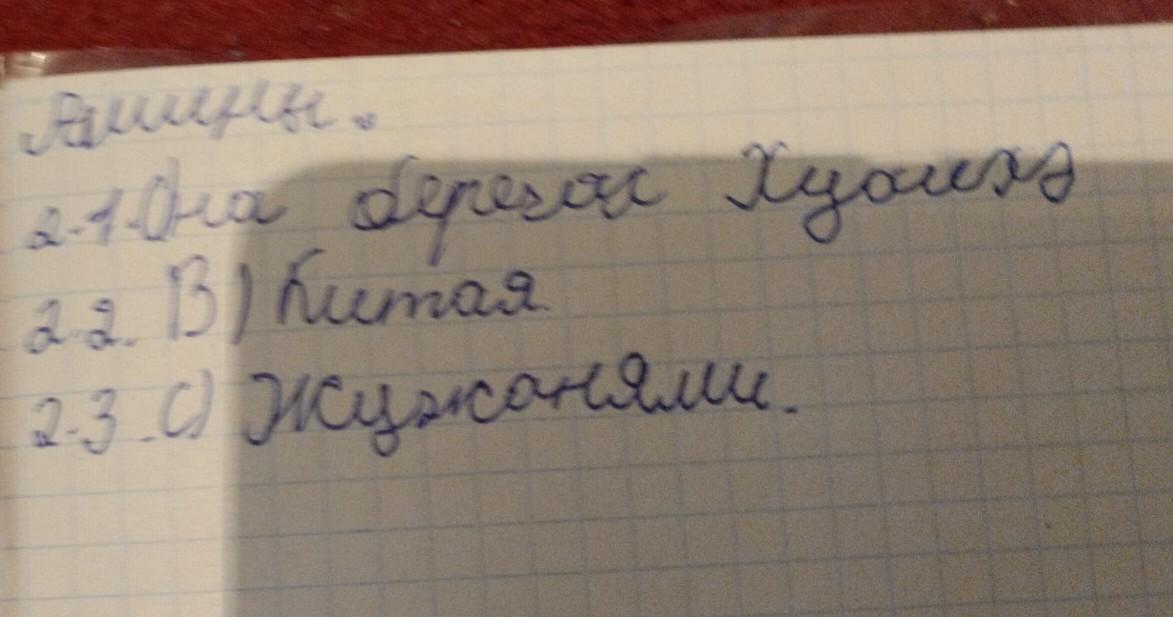 Ашины.
2.1. О на берегах Хуанхэ
2.2. В) Китая
2.3. С) Жужанями.